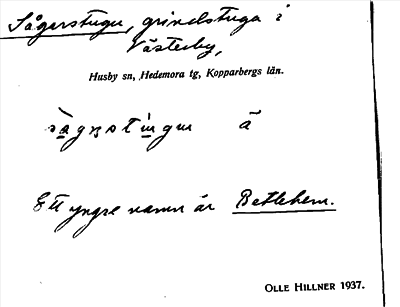 Sågerstugu, grindstuga i
Västerby,
Husby sn, Hedemora tg, Kopparbergs län.
ā
Ett yngre namn är Betlehem.
OLLE HILLNER 1937.